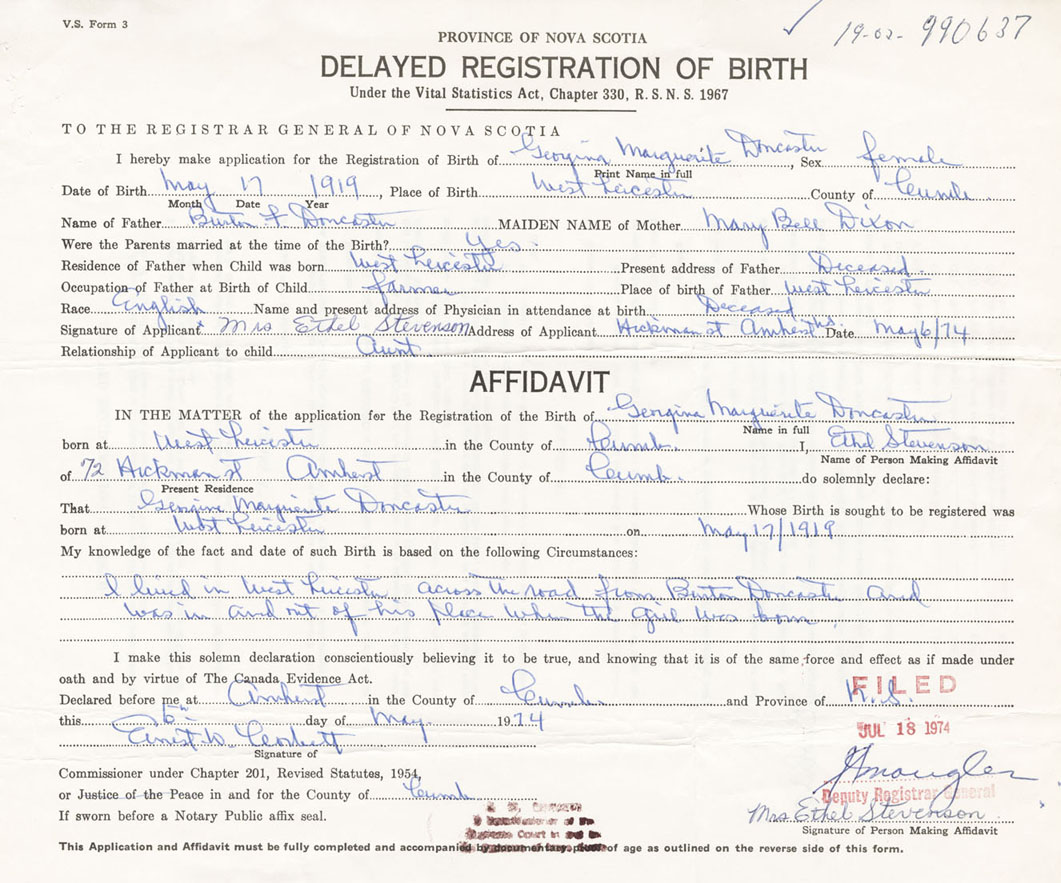 V.S. Form 3
19-02- 990637
PROVINCE OF NOVA SCOTIA
DELAYED REGISTRATION OF BIRTH
Under the Vital Statistics Act, Chapter 330, R. S. N. S. 1967
TO THE REGISTRAR GENERAL OF NOVA SCOTIA
I hereby make application for the Registration of Birth of Georgina Marguerite Doncaster, Sex female
Print Name in full
Date of Birth May 17 1919, Place of Birth West Leicester County of Cumb.
Month Date Year
Name of Father Burton F. Doncaster MAIDEN NAME of Mother Mary Bell Dixon
Were the Parents married at the time of the Birth? Yes.
Residence of Father when Child was born West Leicester Present address of Father Deceased.
Occupation of Father at Birth of Child farmer Place of birth of Father West Leicester
Race English Name and present address of Physician in attendance at birth Deceased
Signature of Applicant Mrs Ethel Stevenson Address of Applicant Hickman st Amherst N.S. Date May 6/74
Relationship of Applicant to child Aunt.
AFFIDAVIT
IN THE MATTER of the application for the Registration of the Birth of Georgina Marguerite Doncaster
Name in full
born at West Leicester in the County of Cumb. I, Ethel Stevenson
Name of Person Making Affidavit
of 72 Hickman st Amherst in the County of Cumb. do solemnly declare:
Present Residence
That Georgine Marguerite Doncaster Whose Birth is sought to be registered was
born at West Leicester on May 17/1919
My knowledge of the fact and date of such Birth is based on the following Circumstances:
I lived in West Leicester across the road from Burton Doncaster and
was in and out of his place when the girl was born.
I make this solemn declaration conscientiously believing it to be true, and knowing that it is of the same force and effect as if made under
oath and by virtue of The Canada Evidence Act.
Declared before me at Amherst in the County of Cumb. and Province of N.S.
FILED
this 6th day of May 1974
JUL 18 1974
Ernest W Corbett
Signature of
Commissioner under Chapter 201, Revised Statutes, 1954,
or Justice of the Peace in and for the County of Cumb
Deputy Registrar General
If sworn before a Notary Public affix seal.
Mrs Ethel Stevenson
Signature of Person Making Affidavit
This Application and Affidavit must be fully completed and accompanied by documentary proof of age as outlined on the reverse side of this form.